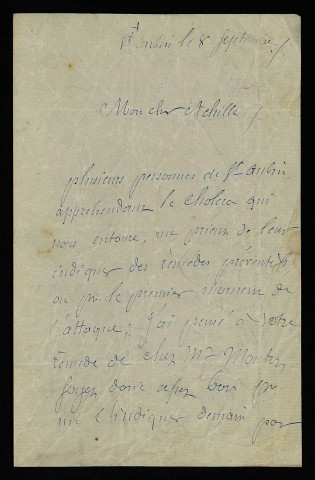 St Aubin le 8 Septembre /.
Mon cher Achille /.
plusieurs personnes de St Aubin
apprehendant le Cholera qui
nous entoure, me prient de leur
indiquer des remedes préventifs
ou pr le premier moment de
l'attaque; J'ai pensé à votre
remede de chez Mr
soyez donc assez bon pr
me l'indiquer demain par